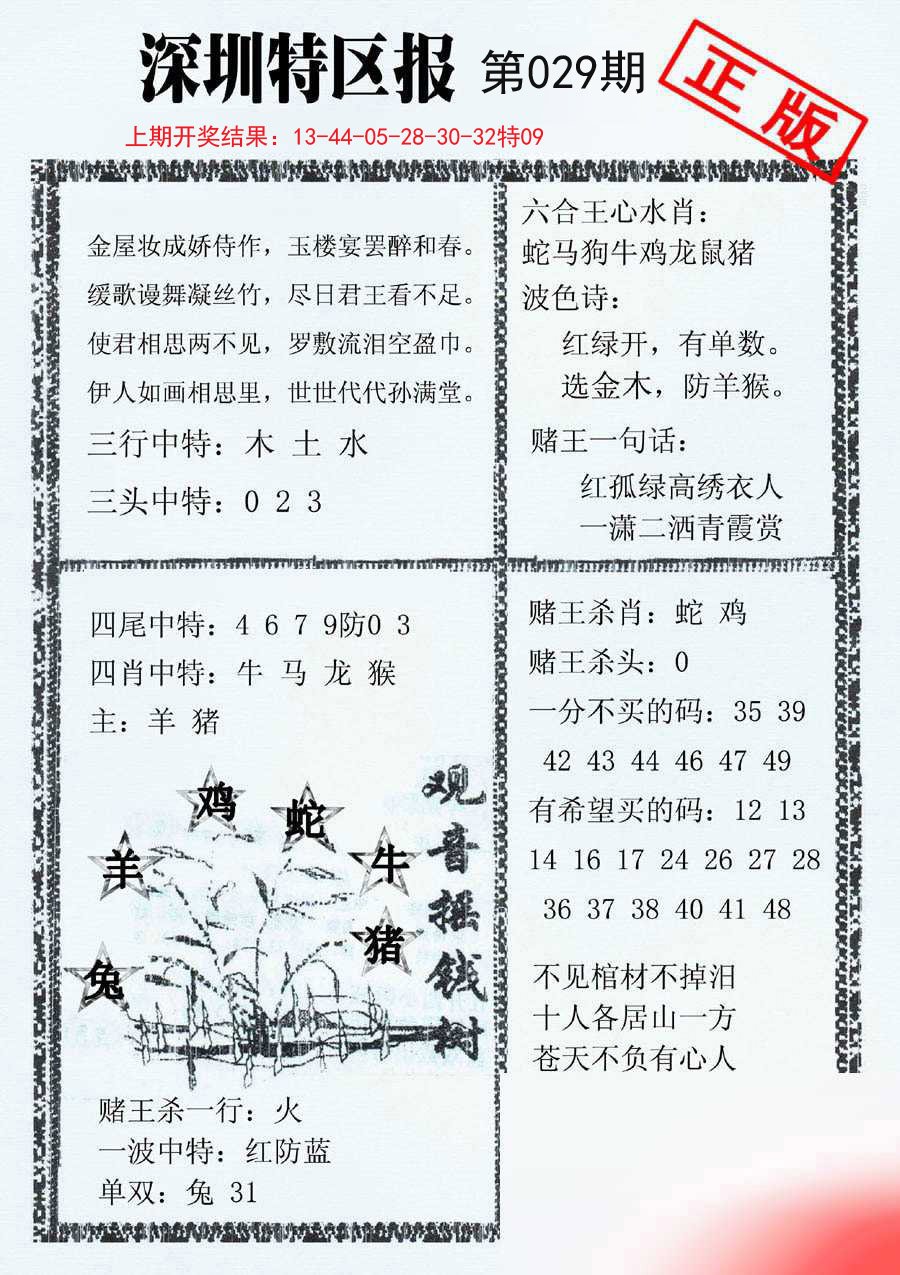 深圳特区报 第029期
正版
上期开奖结果：13-44-05-28-30-32特09
金屋妆成娇侍作，玉楼宴罢醉和春。
缓歌谩舞凝丝竹，尽日君王看不足。
使君相思两不见，罗敷流泪空盈巾。
伊人如画相思里，世世代代孙满堂。
三行中特：木 土 水
三头中特：0 2 3
六合王心水肖：
蛇马狗牛鸡龙鼠猪
波色诗：
红绿开，有单数。
选金木，防羊猴。
赌王一句话：
红孤绿高绣衣人
一潇二洒青霞赏
四尾中特：4 6 7 9防0 3
四肖中特：牛 马 龙 猴
主：羊 猪
鸡
蛇
羊
牛
猪
兔
观音摇钱树
赌王杀一行：火
一波中特：红防蓝
单双：兔 31
赌王杀肖：蛇 鸡
赌王杀头：0
一分不买的码：35 39
42 43 44 46 47 49
有希望买的码：12 13
14 16 17 24 26 27 28
36 37 38 40 41 48
不见棺材不掉泪
十人各居山一方
苍天不负有心人